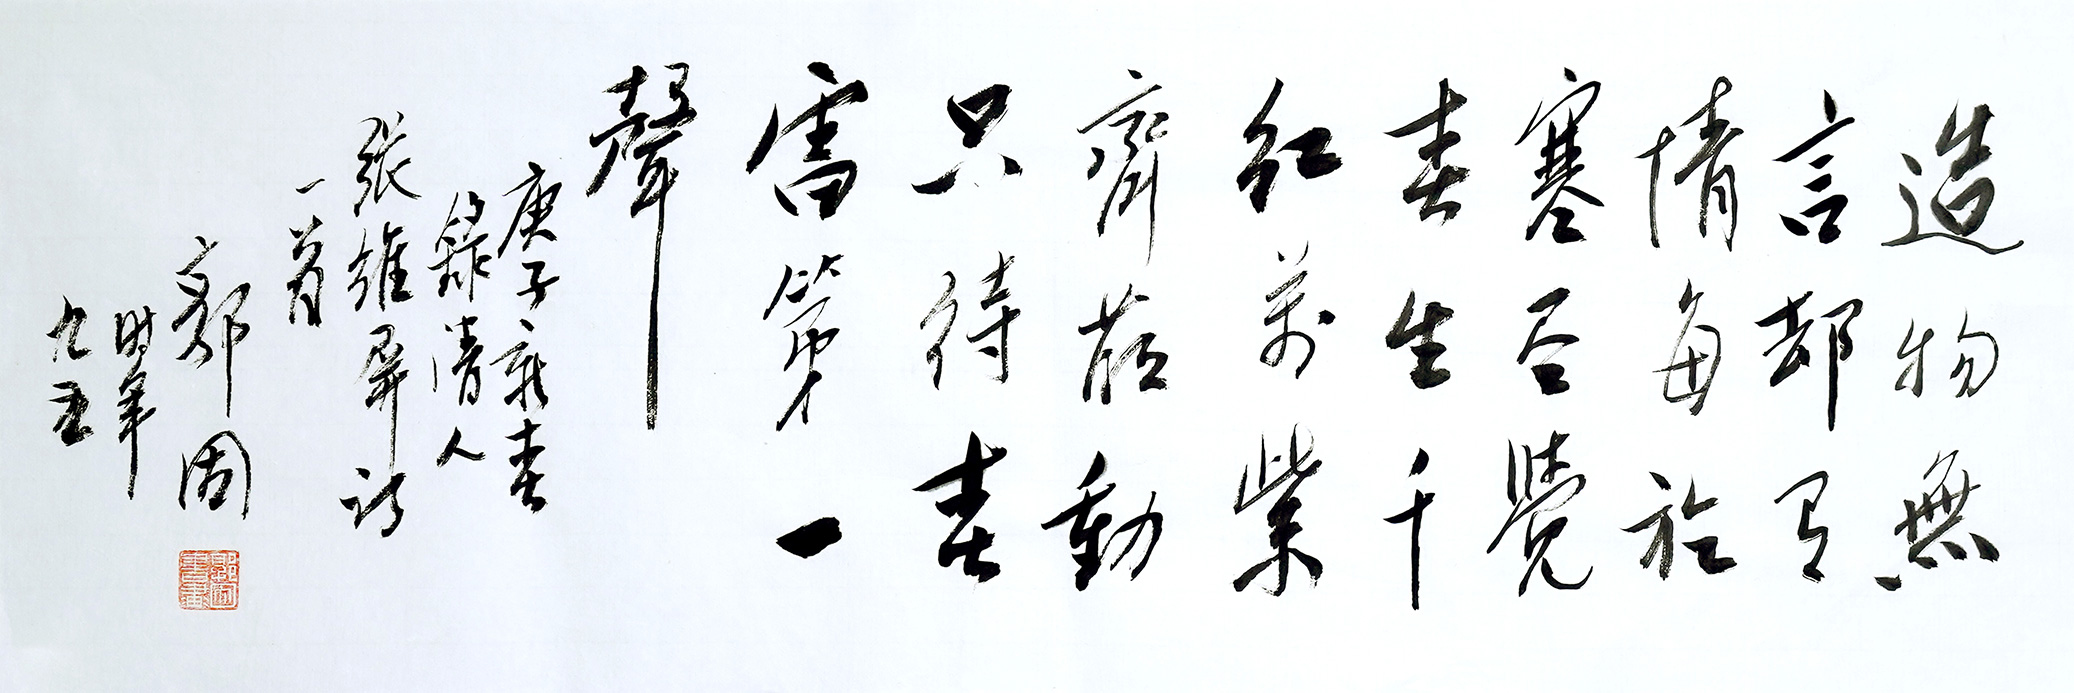 造物無
言却有
情每於
寒否覺
春生千
紅萬紫
齊萌動
只待春
雷第一
聲
庚子新春
錄清人
張維屏詩
一首
郭周
時年
九五